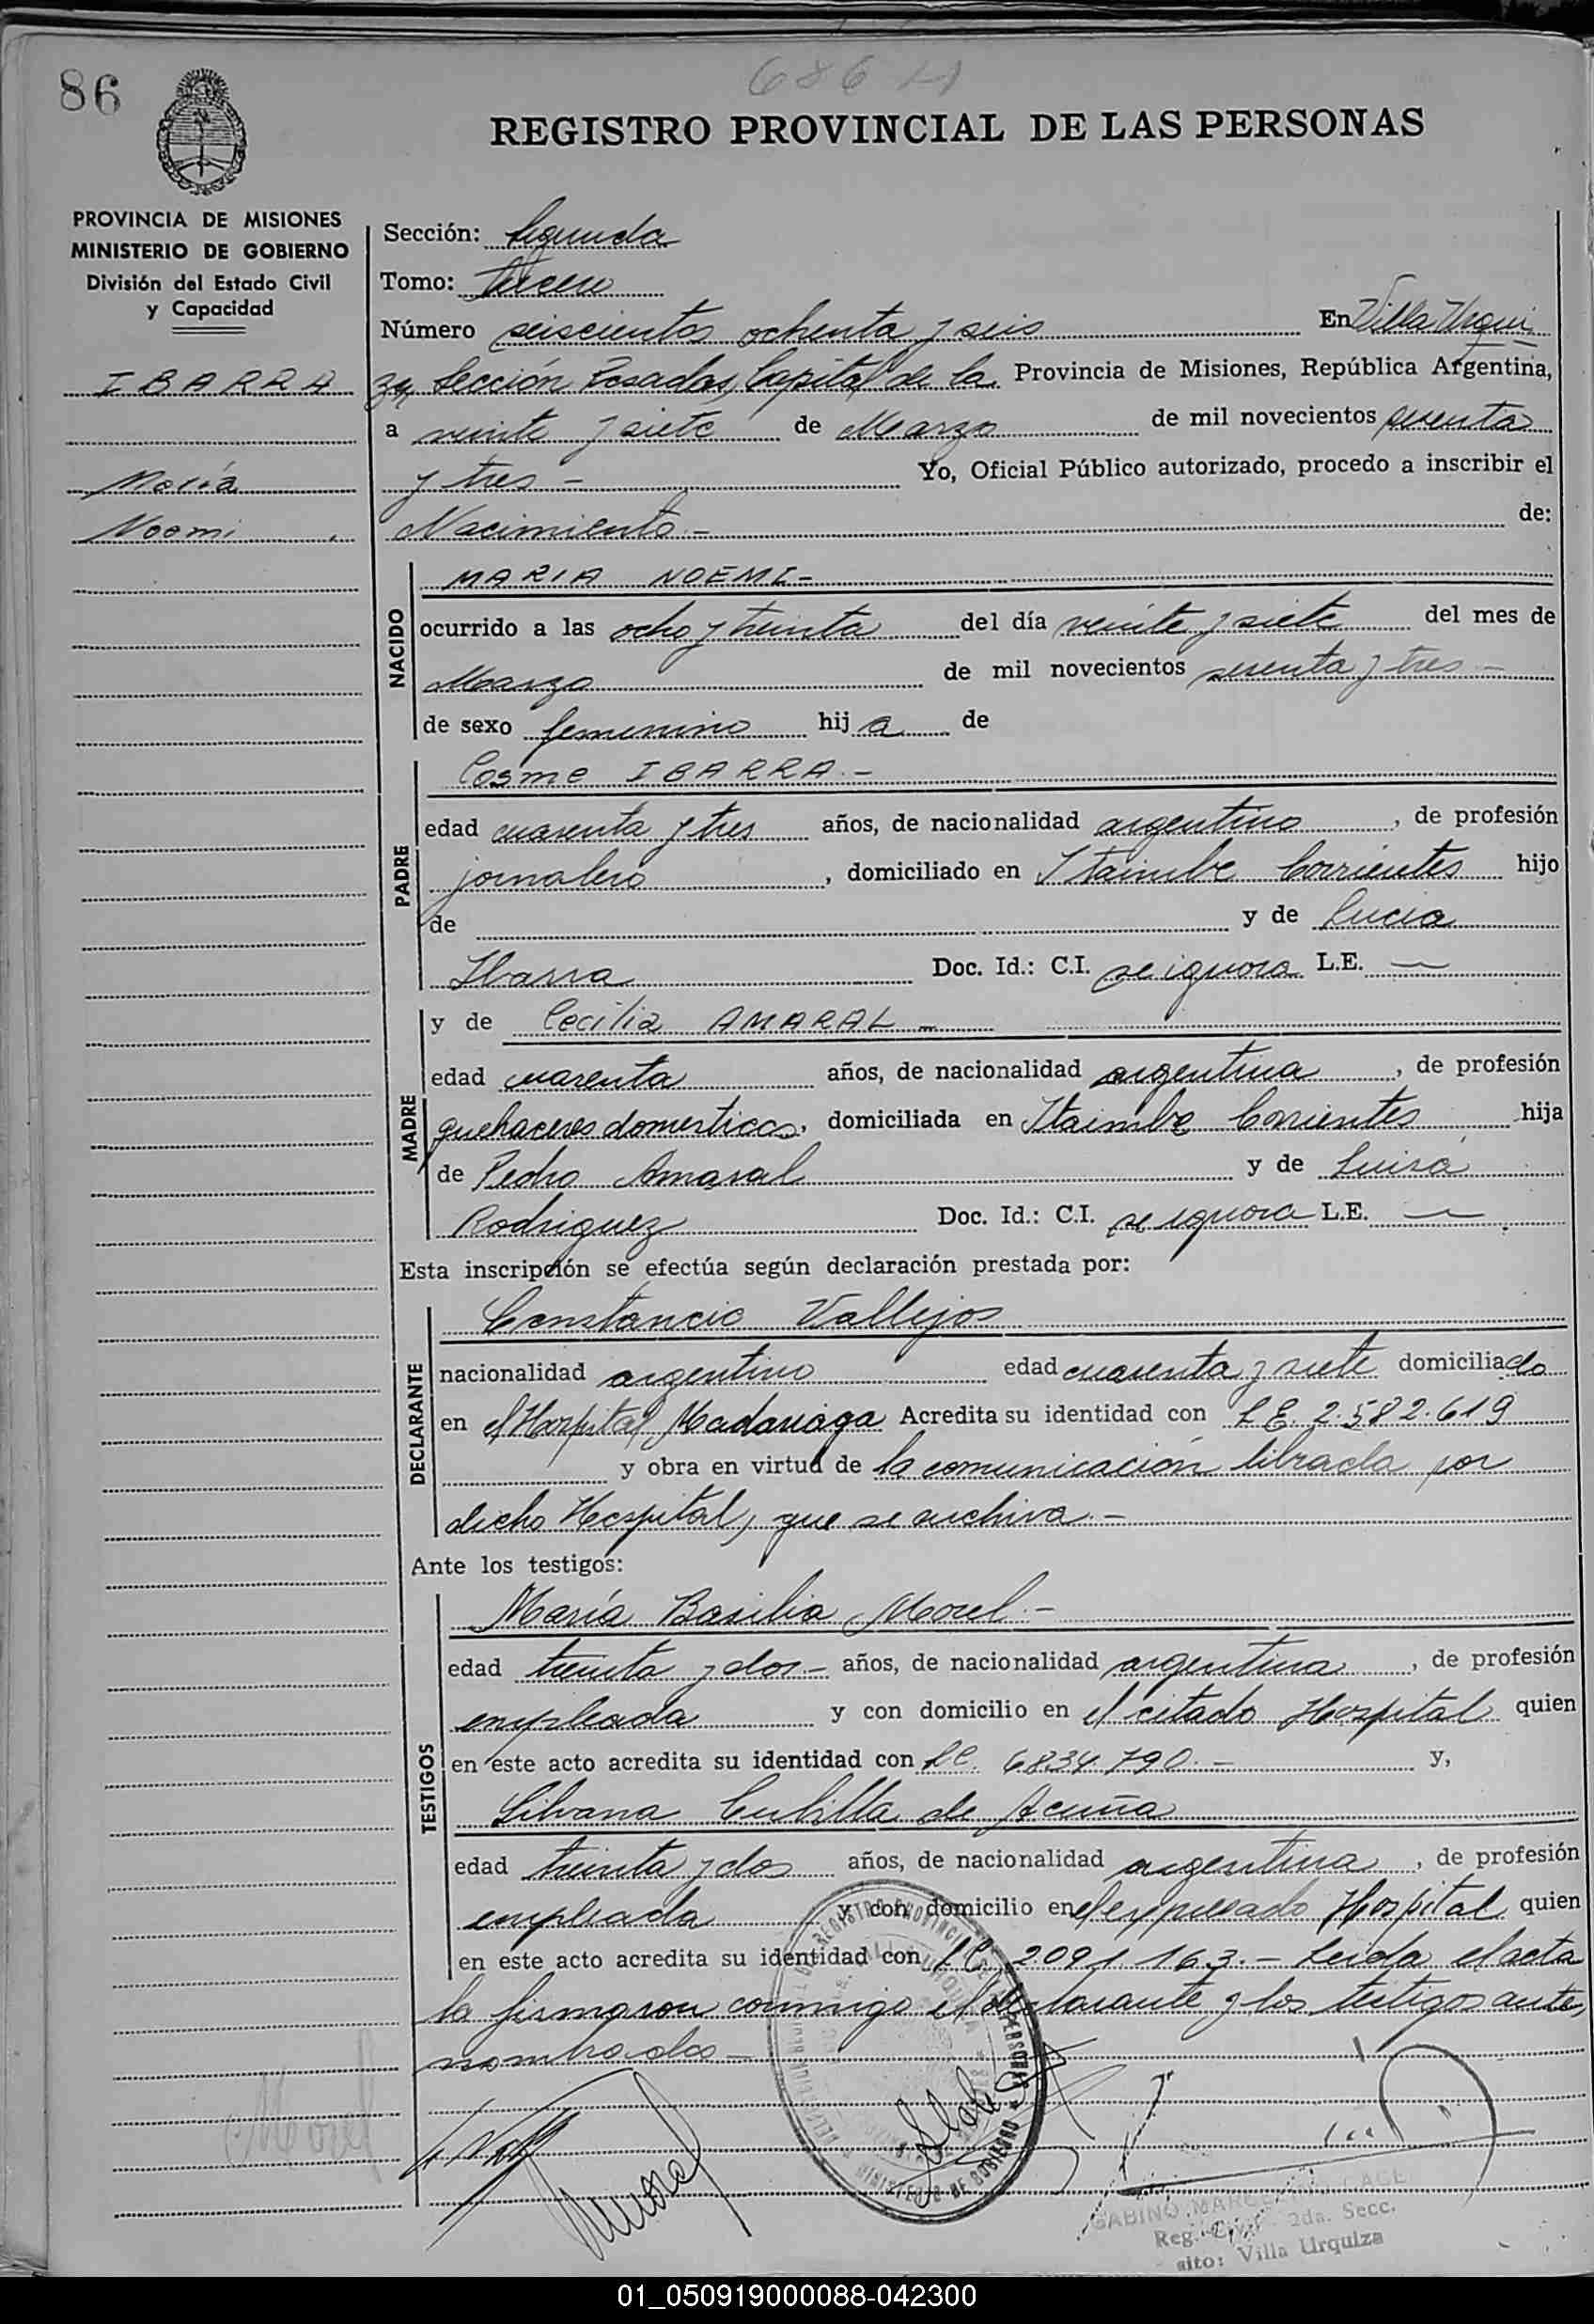 86
686 H
REGISTRO PROVINCIAL DE LAS PERSONAS
PROVINCIA DE MISIONES
MINISTERIO DE GOBIERNO
División del Estado Civil
y Capacidad
IBARRA
María
Noemi
Sección: Segunda
Tomo: tercero
Número seiscientos ochenta y seis En Villa Urqui
za, Sección Posadas, Capital de la Provincia de Misiones, República Argentina,
a veinte y siete de Marzo de mil novecientos sesenta
y tres - Yo, Oficial Público autorizado, procedo a inscribir el
Nacimiento - de:
NACIDO
MARIA NOEMI -
ocurrido a las ocho y treinta del día veinte y siete del mes de
Marzo de mil novecientos sesenta y tres -
de sexo femenino hij a de
PADRE
Cosme IBARRA. -
edad cuarenta y tres años, de nacionalidad argentino, de profesión
jornalero, domiciliado en Itaimbe Corrientes hijo
de y de Lucia
Ibarra Doc. Id.: C.I. se ignora L.E. —
MADRE
y de Cecilia AMARAL -
edad cuarenta años, de nacionalidad argentina, de profesión
quehaceres domesticos, domiciliada en Itaimbe Corrientes hija
de Pedro Amaral y de Luisa
Rodriguez Doc. Id.: C.I. se ignora L.E. —
Esta inscripción se efectúa según declaración prestada por:
DECLARANTE
Constancio Vallejos
nacionalidad argentino edad cuarenta y siete domiciliado
en el Hospital Madariaga Acredita su identidad con L.E. 2.582.619
y obra en virtud de la comunicación librada por
dicho Hospital, que se archiva. -
Ante los testigos:
TESTIGOS
María Basilia Morel. -
edad treinta y dos - años, de nacionalidad argentina, de profesión
empleada y con domicilio en el citado Hospital quien
en este acto acredita su identidad con L.C. 6.834.790. - y,
Silvana Cubilla de Acuña
edad treinta y dos años, de nacionalidad argentina, de profesión
empleada y con domicilio en el expresado Hospital quien
en este acto acredita su identidad con L.C. 2.091.163. - Leida el acta
la firmaron conmigo el declarante y los testigos ante,
nombrados -
Morel
GABINO MARCE
Reg. Civil 2da. Secc.
sito: Villa Urquiza
01_050919000088-042300